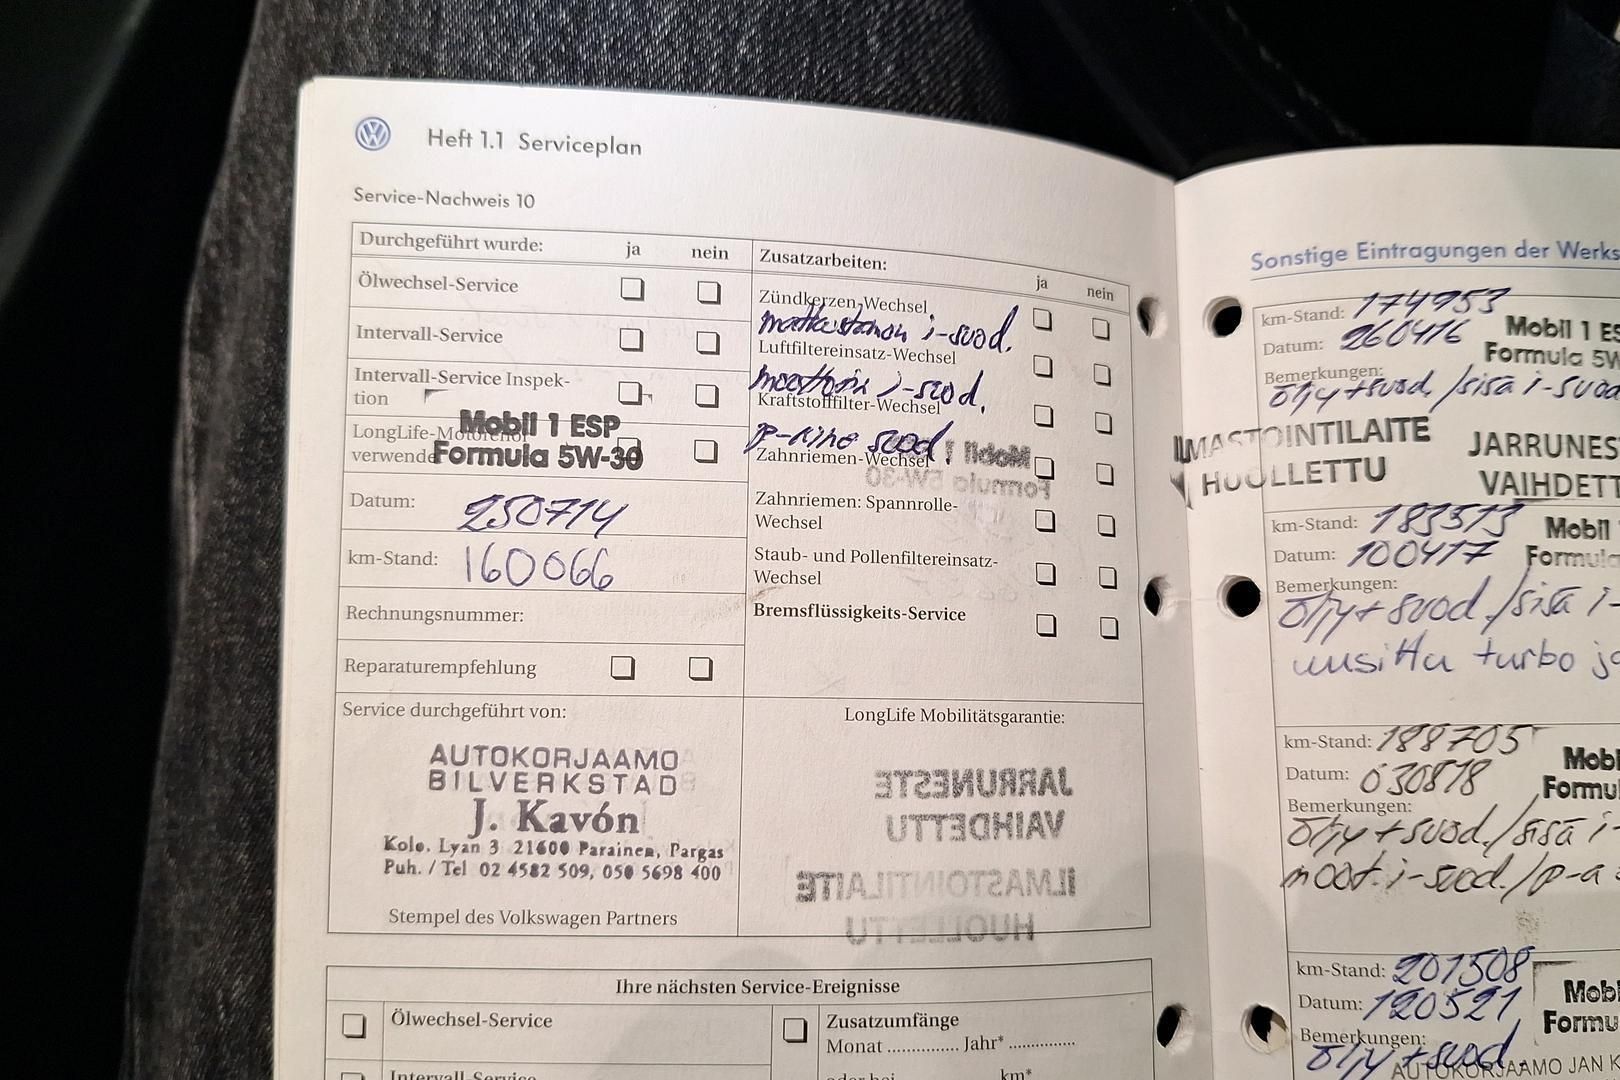 Heft 1.1 Serviceplan
Service-Nachweis 10
Durchgeführt wurde: ja nein
Ölwechsel-Service
Intervall-Service
Intervall-Service Inspek-
tion
LongLife-Motorenöl
verwendet
Mobil 1 ESP
Formula 5W-30
Datum: 250714
km-Stand: 160066
Rechnungsnummer:
Reparaturempfehlung
Service durchgeführt von:
AUTOKORJAAMO
BILVERKSTAD
J. Kavón
Kolo. Lyan 3 21600 Parainen, Pargas
Puh. / Tel 02 4582 509, 050 5698 400
Stempel des Volkswagen Partners
Zusatzarbeiten: ja nein
Zündkerzen-Wechsel
matkustamon i-suod.
Luftfiltereinsatz-Wechsel
moottorin i-suod.
Kraftstofffilter-Wechsel
p-aine suod.
Zahnriemen-Wechsel
Mobil 1
Formula 5W-30
Zahnriemen: Spannrolle-
Wechsel
Staub- und Pollenfiltereinsatz-
Wechsel
Bremsflüssigkeits-Service
LongLife Mobilitätsgarantie:
JARRUNESTE
VAIHDETTU
ILMASTOINTILAITE
HUOLLETTU
Ihre nächsten Service-Ereignisse
Ölwechsel-Service
Intervall-Service
Zusatzumfänge
Monat Jahr*
oder bei km*
Sonstige Eintragungen der Werks
km-Stand: 174953
Datum: 260416
Mobil 1 ES
Formula 5W
Bemerkungen:
öljy+suod./sisä i-suod
ILMASTOINTILAITE
HUOLLETTU
JARRUNES
VAIHDETT
km-Stand: 183513
Datum: 100417
Mobil
Formula
Bemerkungen:
öljy+suod./sisä i-
uusittu turbo ja
km-Stand: 188705
Datum: 030818
Mob
Formu
Bemerkungen:
öljy+suod./sisä i-
moot. i-suod./p-a
km-Stand: 201508
Datum: 120521
Mobi
Formu
Bemerkungen:
öljy+suod.
AUTOKORJAAMO JAN K